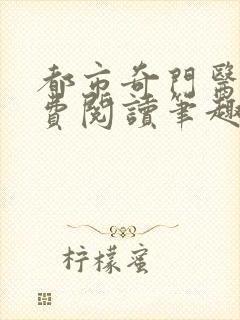 都市奇門醫
費閱讀筆趣
柠檬蜜